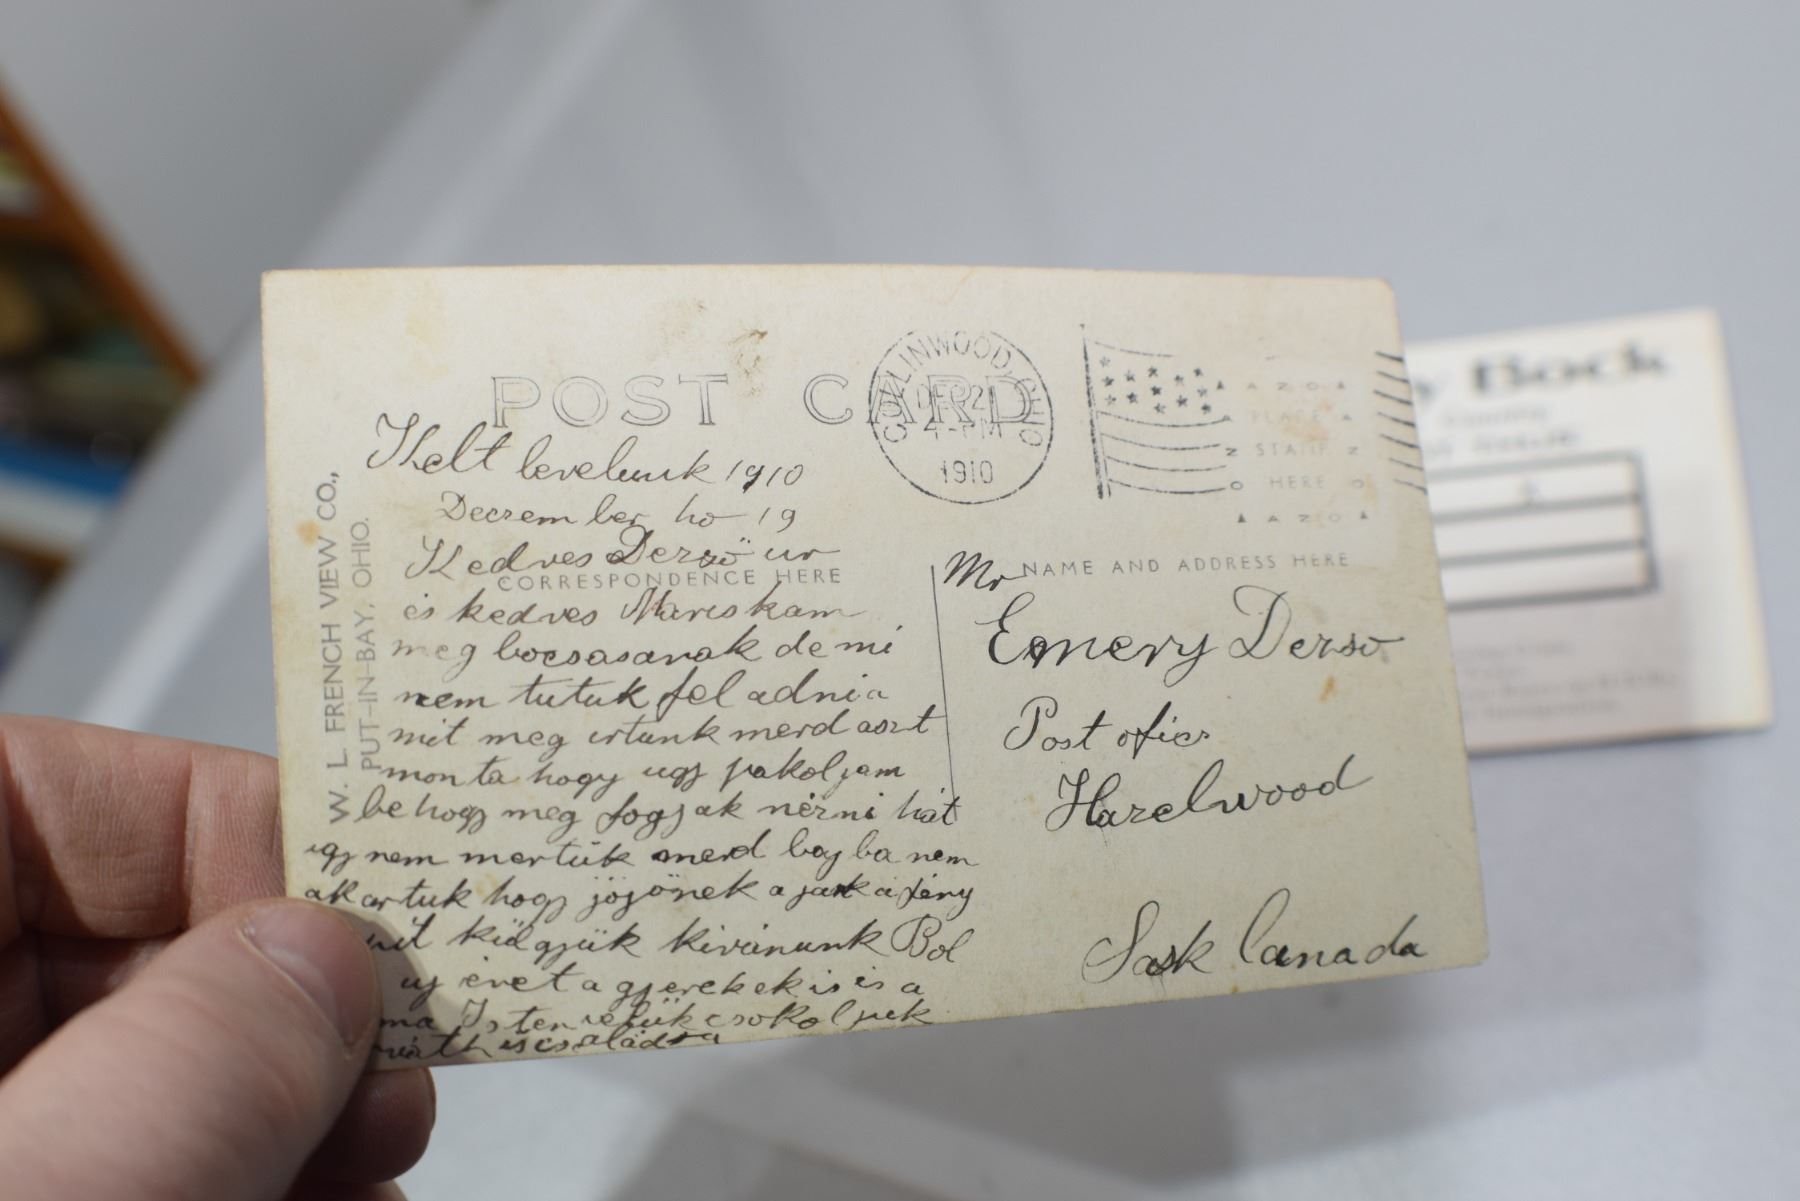 POST CARD
COLLINWOOD, OHIO
DEC 2
4-PM
1910
AZO
PLACE
STAMP
HERE
AZO
W. L. FRENCH VIEW CO.,
PUT-IN-BAY, OHIO.
CORRESPONDENCE HERE
NAME AND ADDRESS HERE
Kelt levelunk 1910
Deczember ho 19
Kedves Dersö ur
és kedves Mariskam
meg bocsasanak de mi
nem tutuk fel adni a
mit meg irtunk merd aszt
monta hogy ugy pakoljam
be hogy meg fogjak nézni hát
ugy nem mertük merd bajba nem
akartuk hogy jöjönek a fény
küdgyük kivánunk Bol
uj évet a gyerekekis és a
ma Isten velük csokoljuk
és családja
Mr
Emery Derso
Post ofics
Hazelwood
Sask Canada
y Bock